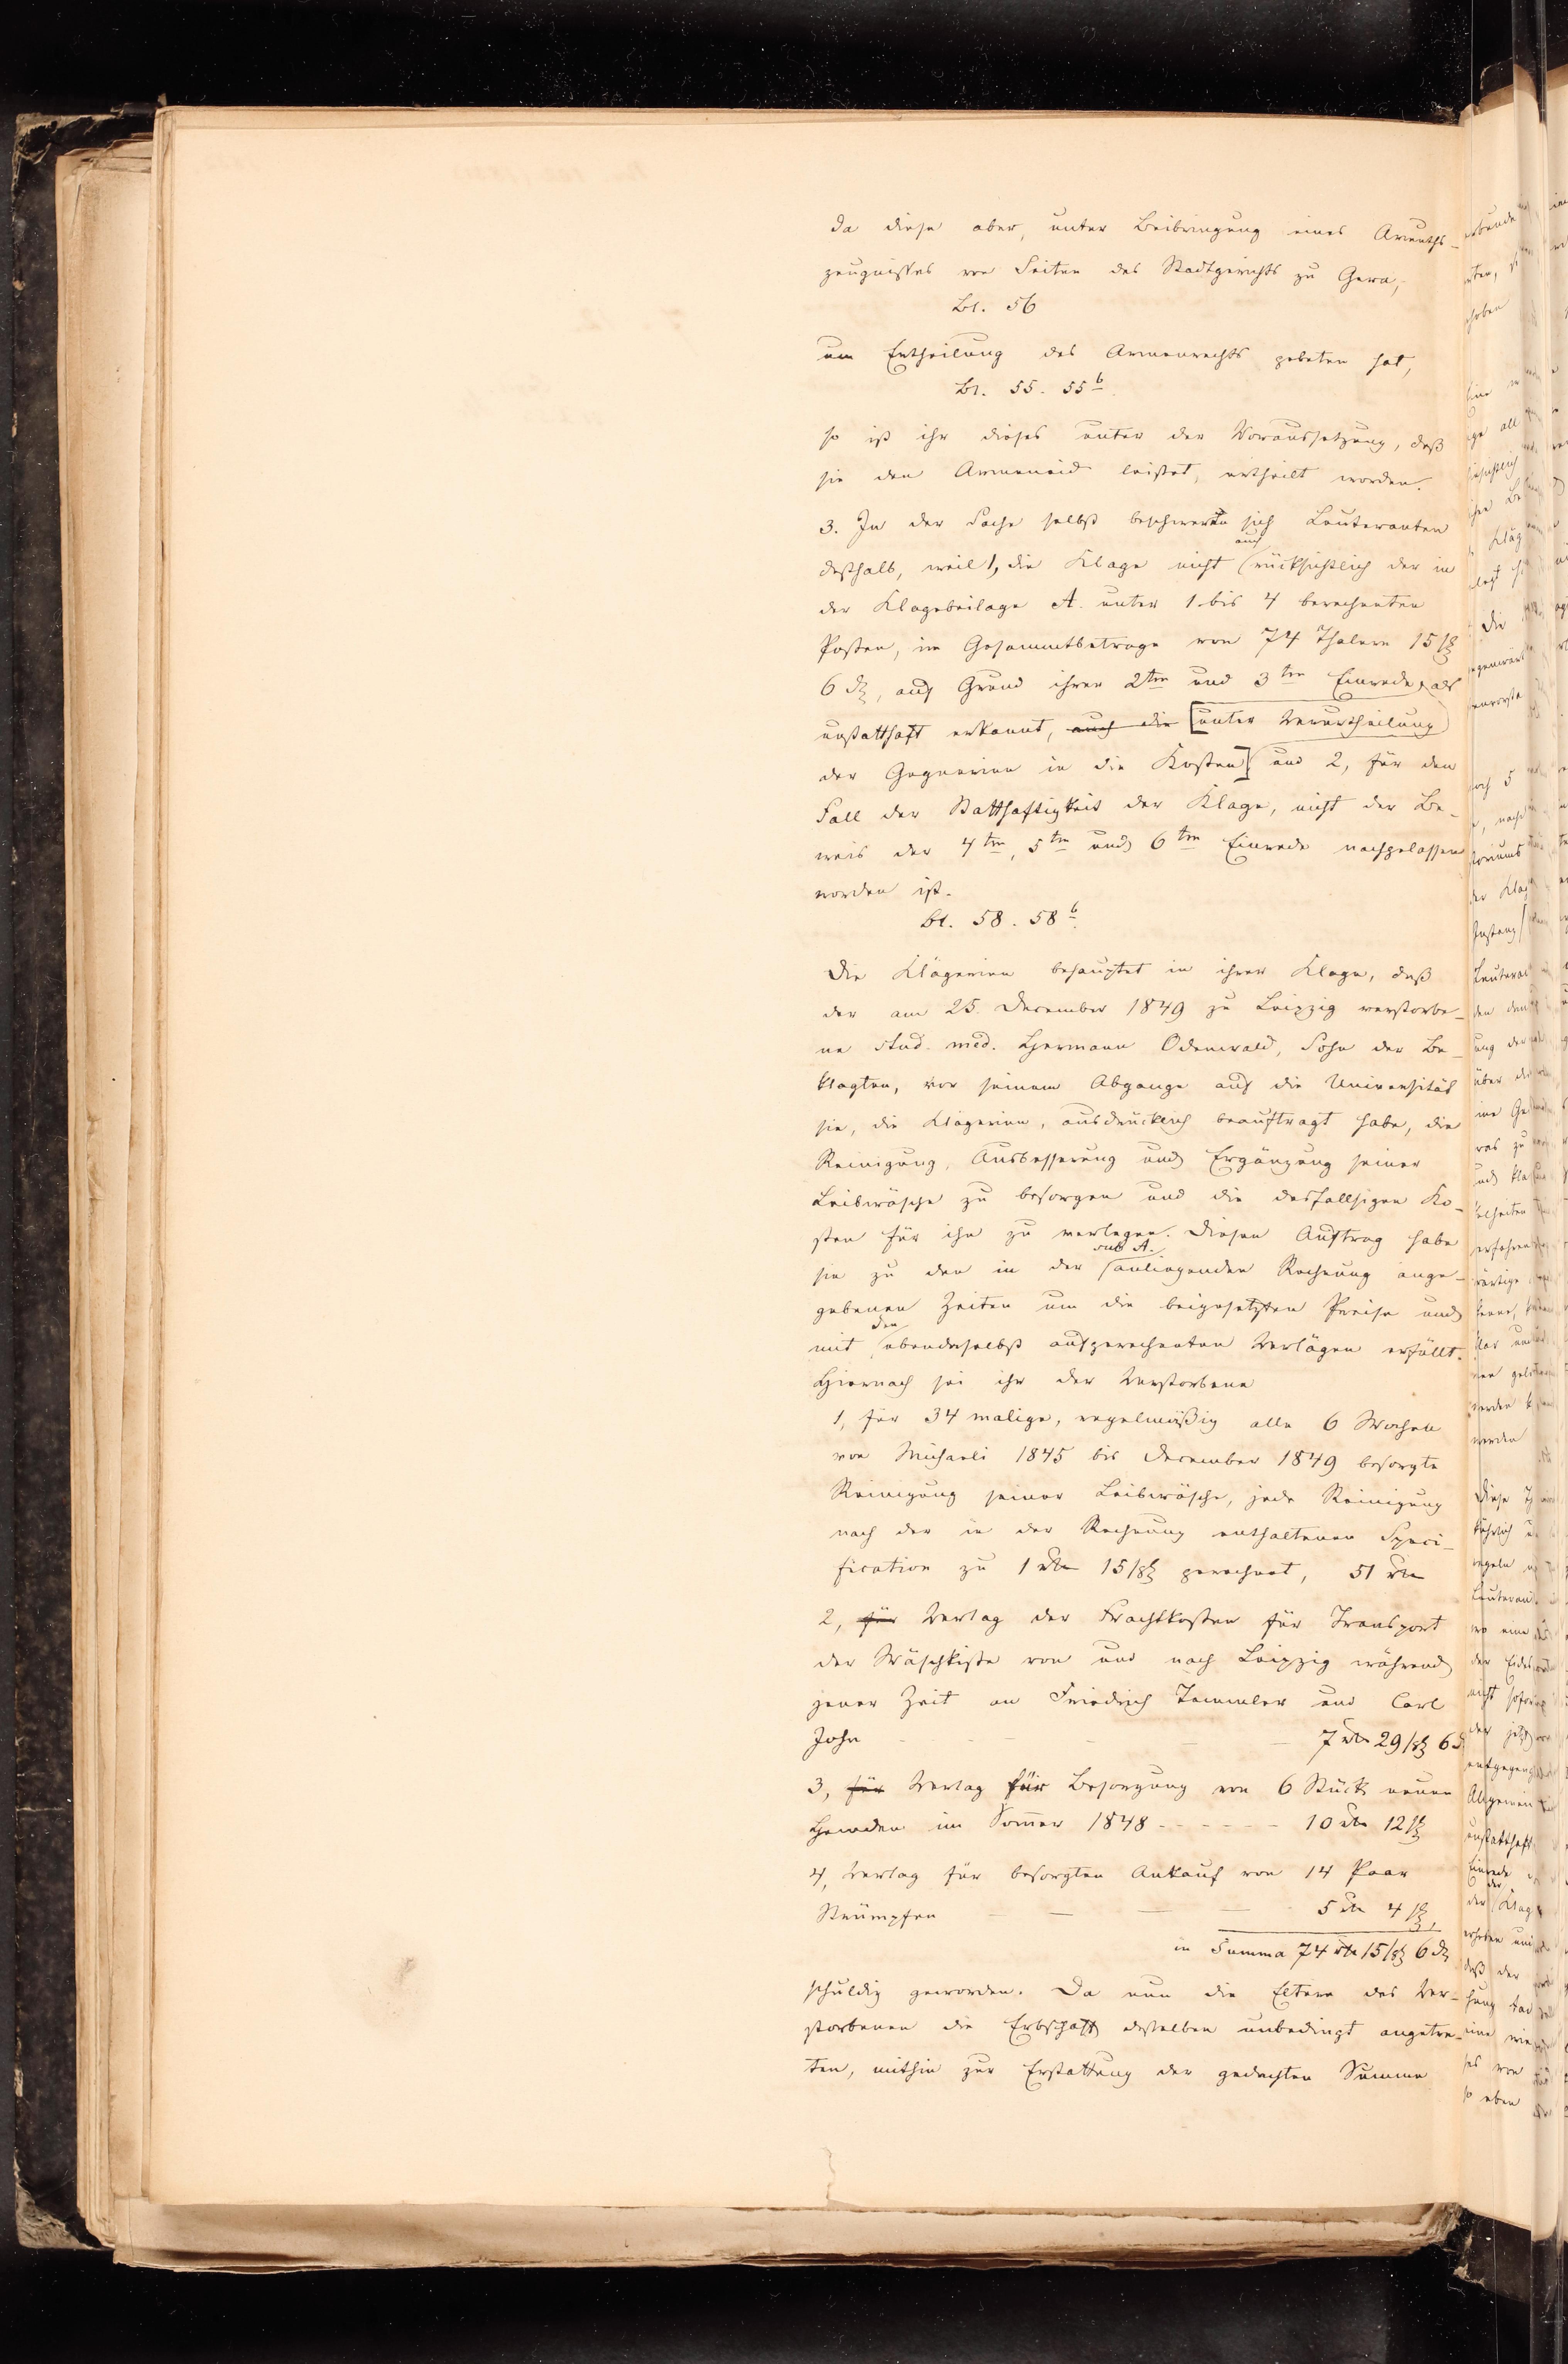 da diese aber, unter Beibringung eines Armuths-
zeugnisses von Seiten des Stadtgerichts zu Gera,
Bl. 56
um Ertheilung des Armenrechts gebeten hat,
Bl. 55. 55b.
so ist ihr dieses unter der Voraussetzung, daß
sie den Armeneid leistet, ertheilt worden.
3. In der Sache selbst beschweren sich Leuteranten
deßhalb, weil 1, die Klage nicht auch rücksichtlich der in
der Klagebeilage A. unter 1 bis 4 berechneten
Posten, im Gesammtbetrage von 74 Thalern 15 ngl
6 d, auf Grund ihrer 2ten und 3ten Einrede, als
unstatthaft erkannt, auch die [unter Verurtheilung
der Gegnerinn in die Kosten] und 2, für den
Fall der Statthaftigkeit der Klage, nicht der Be-
weis der 4ten, 5ten und 6ten Einrede nachgelassen
worden ist.
Bl. 58. 58b.
Die Klägerinn behauptet in ihrer Klage, daß
der am 25. December 1849 zu Leipzig verstorbe-
ne stud. med. Hermann Odenwald, Sohn der Be-
klagten, vor seinem Abgange auf die Universität
sie, die Klägerinn, ausdrücklich beauftragt habe, die
Reinigung, Ausbesserung und Ergänzung seiner
Leibwäsche zu besorgen und die desfallsigen Ko-
sten für ihn zu verlegen. Diesen Auftrag habe
sie zu den in der sub A. anliegenden Rechnung ange-
gebenen Zeiten um die beigesetzten Preise und
mit den ebendaselbst aufgerechneten Verlägen erfüllt.
Hiernach sei ihr der Verstorbene
1, für 34 malige, regelmäßig alle 6 Wochen
von Michaeli 1845 bis December 1849 besorgte
Reinigung seiner Leibwäsche, jede Reinigung
nach der in der Rechnung enthaltenen Speci-
fication zu 1 rtl 15 ngl gerechnet, 51 rtl
2, für Verlag der Frachtkosten für Transport
der Wäschkiste von und nach Leipzig während
jener Zeit an Friedrich Temmler und Carl
John - - - - 7 rtl 29 ngl 6 d
3, für Verlag für Besorgung von 6 Stück neuen
Hemden im Sommer 1848 - - - - - - 10 rtl 12 ngl
4, Verlag für besorgten Ankauf von 14 Paar
Strümpfen - - - - 5 rtl 4 ngl,
in Summa 74 rtl 15 ngl 6 d
schuldig geworden. Da nun die Eltern des Ver-
storbenen die Erbschaft desselben unbedingt angetre-
ten, mithin zur Erstattung der gedachten Summe